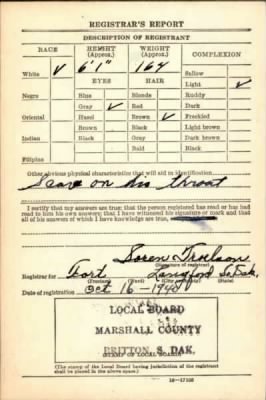 REGISTRAR'S REPORT
DESCRIPTION OF REGISTRANT
RACE HEIGHT (Approx.) WEIGHT (Approx.) COMPLEXION
White ✓ 6'1" 164 Sallow
EYES HAIR Light ✓
Negro Blue Blonde Ruddy
Gray ✓ Red Dark
Oriental Hazel Brown ✓ Freckled
Brown Black Light brown
Indian Black Gray Dark brown
Bald Black
Filipino
Other obvious physical characteristics that will aid in identification
Scar on his throat
I certify that my answers are true; that the person registered has read or has had
read to him his own answers; that I have witnessed his signature or mark and that
all of his answers of which I have knowledge are true,
Soren
(Signature of registrar)
Registrar for Fort Langford So. Dak.
(Precinct) (Ward) (City or county) (State)
Date of registration Oct 16 - 1940
LOCAL BOARD
MARSHALL COUNTY
BRITTON S. DAK.
(STAMP OF LOCAL BOARD)
(The stamp of the Local Board having jurisdiction of the registrant
shall be placed in the above space.)
16-17105